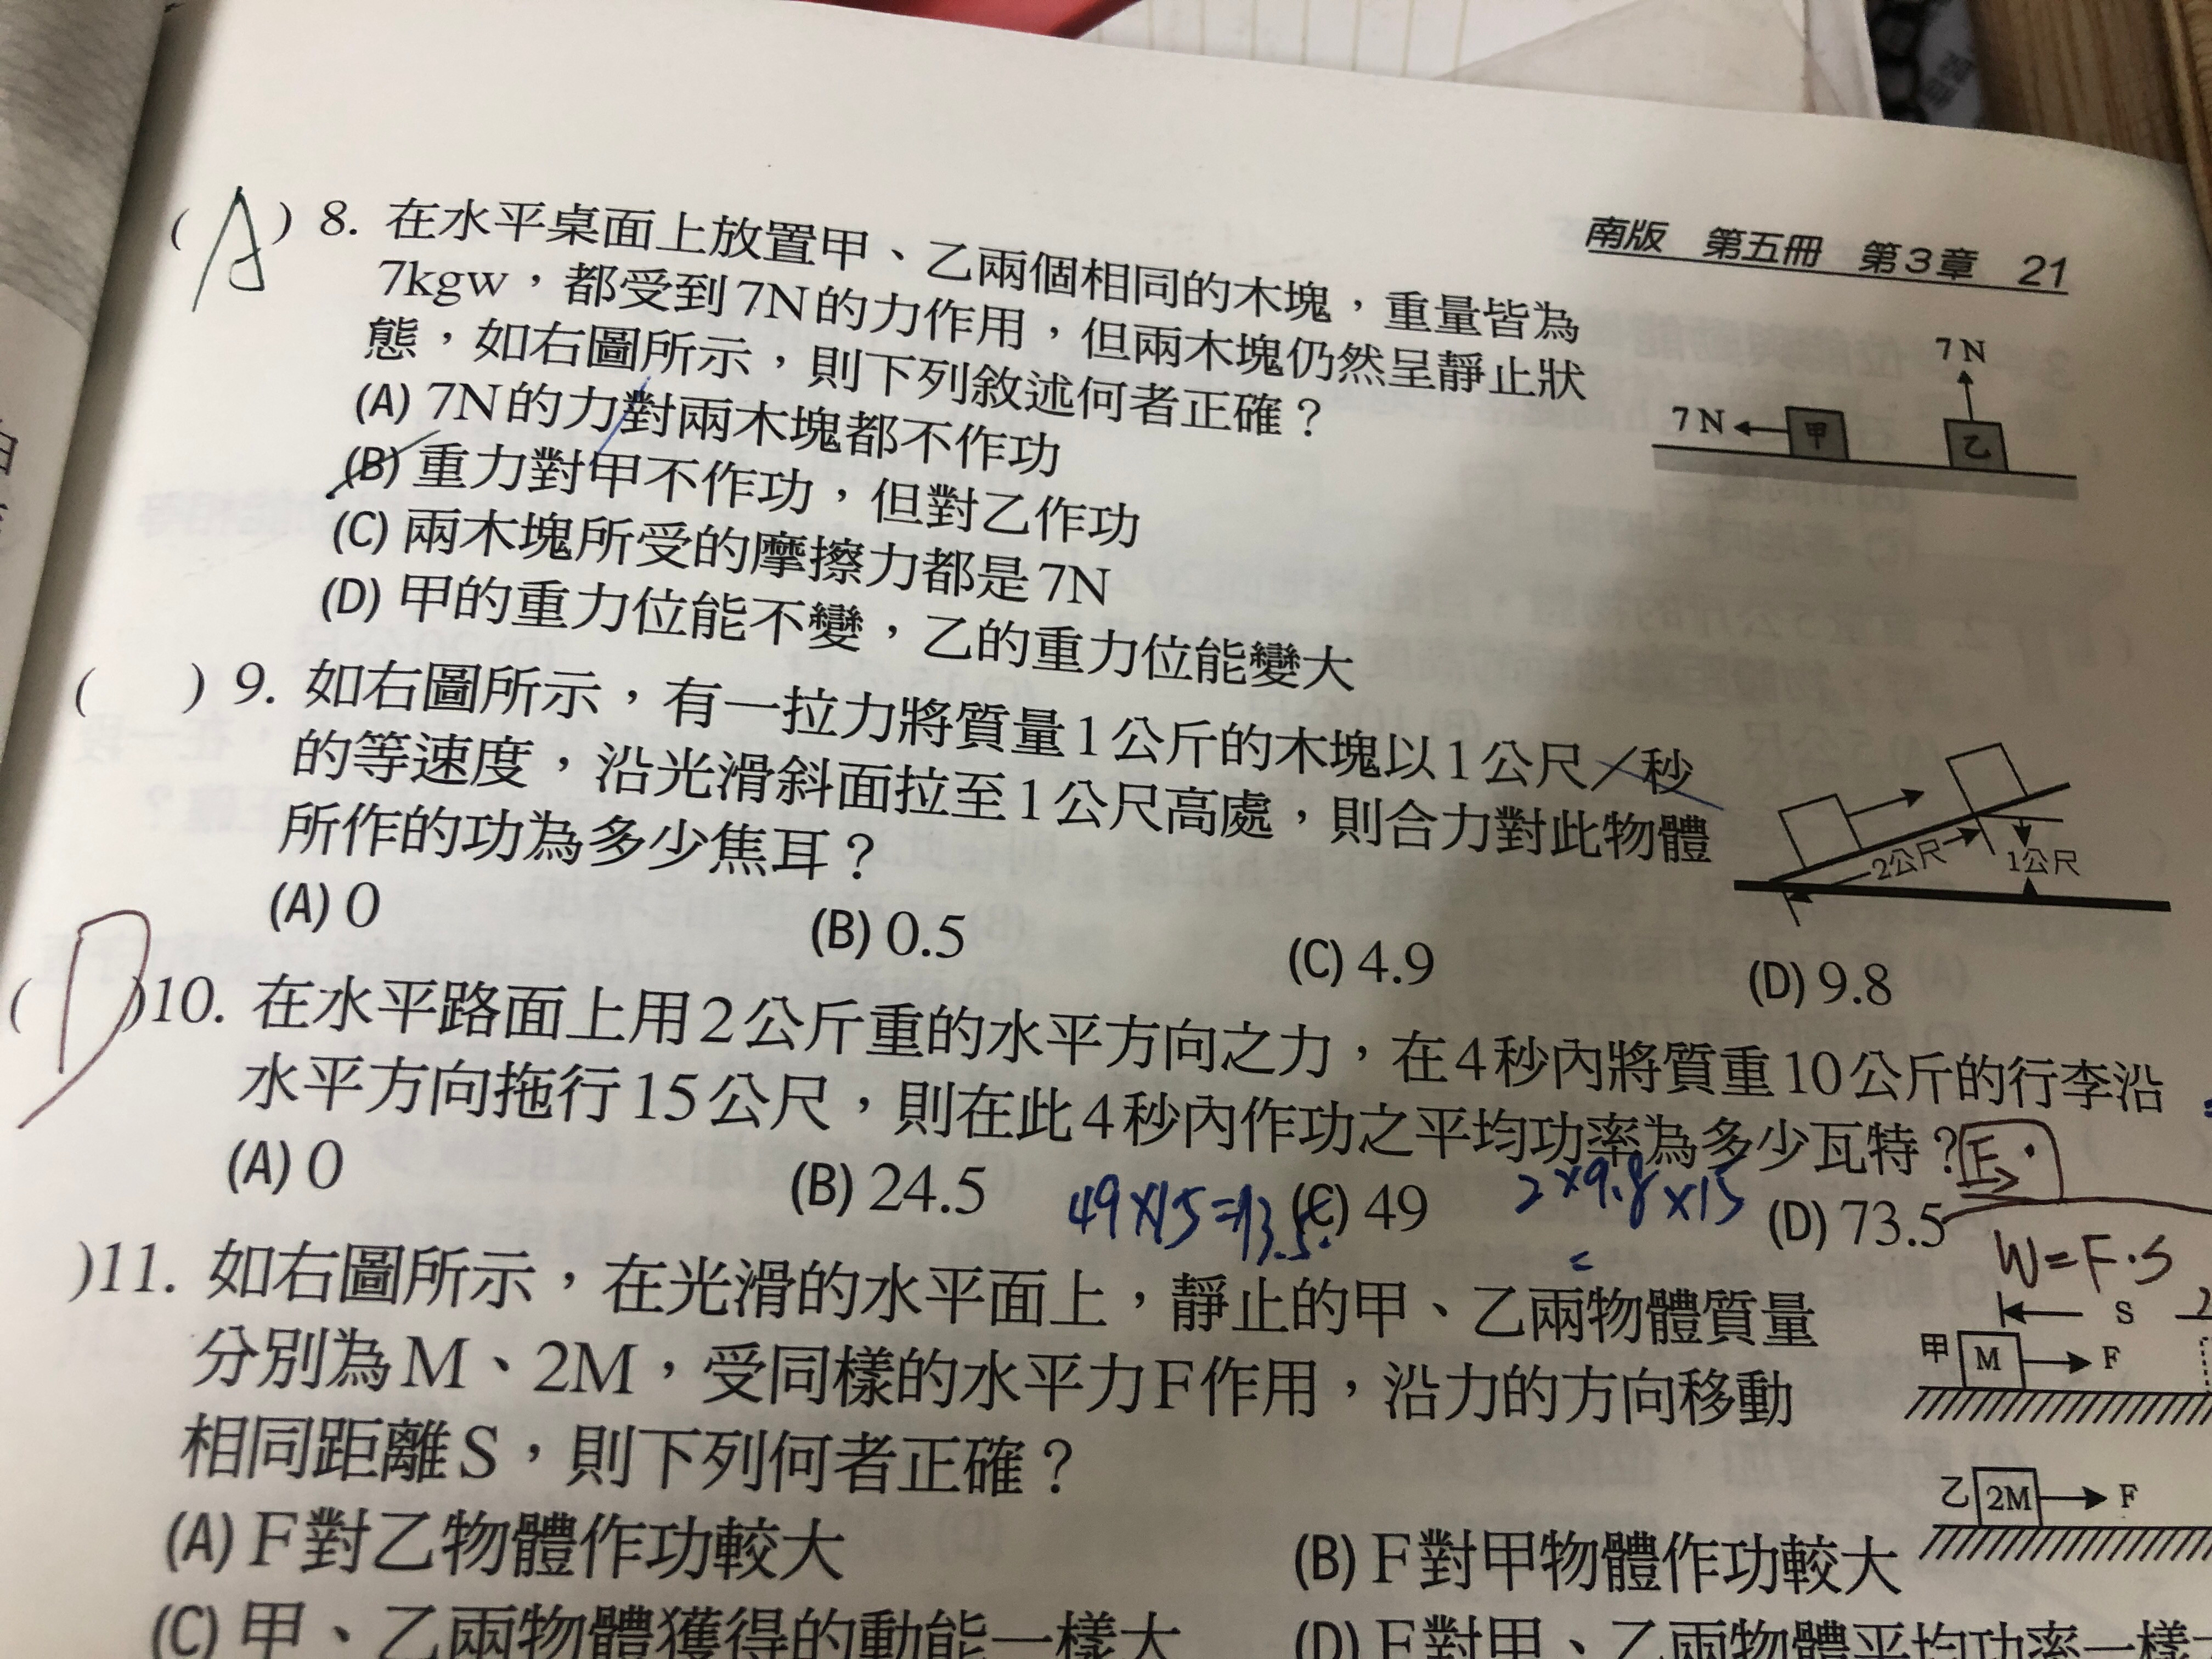 南版 第五冊 第3章 21
(A) 8. 在水平桌面上放置甲、乙兩個相同的木塊，重量皆為
7kgw，都受到7N的力作用，但兩木塊仍然呈靜止狀
態，如右圖所示，則下列敘述何者正確？
(A) 7N的力對兩木塊都不作功
(B) 重力對甲不作功，但對乙作功
(C) 兩木塊所受的摩擦力都是7N
(D) 甲的重力位能不變，乙的重力位能變大
7N
7N
甲
乙
( ) 9. 如右圖所示，有一拉力將質量1公斤的木塊以1公尺／秒
的等速度，沿光滑斜面拉至1公尺高處，則合力對此物體
所作的功為多少焦耳？
(A) 0 (B) 0.5 (C) 4.9 (D) 9.8
2公尺
1公尺
(D)10. 在水平路面上用2公斤重的水平方向之力，在4秒內將質重10公斤的行李沿
水平方向拖行15公尺，則在此4秒內作功之平均功率為多少瓦特？
(A) 0 (B) 24.5 (C) 49 (D) 73.5
2×9.8×15
=
W=F·S
)11. 如右圖所示，在光滑的水平面上，靜止的甲、乙兩物體質量
分別為M、2M，受同樣的水平力F作用，沿力的方向移動
相同距離S，則下列何者正確？
(A) F對乙物體作功較大 (B) F對甲物體作功較大
(C) 甲、乙兩物體獲得的動能一樣大 (D) F對甲、乙兩物體平均功率一樣
S
甲 M F
乙 2M F